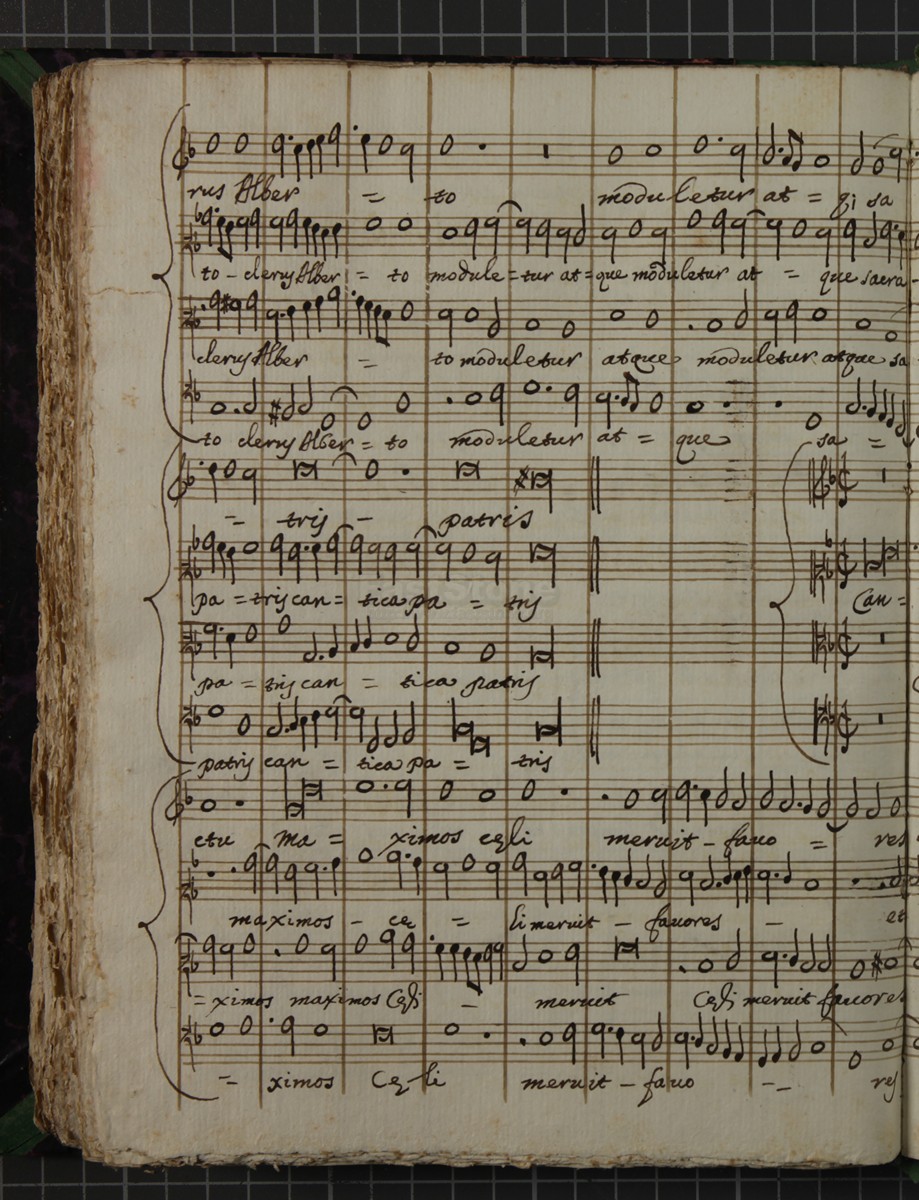 rus Alber = to moduletur at = qȝ sa
to - clerus Alber = to module = tur at = que moduletur at = que sacra -
clerus Alber = to moduletur atque moduletur atque sa
to clerus Alber = to moduletur at = que sa =
= tris - patris
pa = tris can = tica pa = tris Can =
pa = tris can = tica patris
patris can = tica pa = tris
etu Ma = ximos cęli meruit - fauo = res
maximos - ce = li meruit - fauores - et
= ximos maximos Cęli - meruit Cęli meruit fauores
= ximos Cę - li meruit - fauo - - res